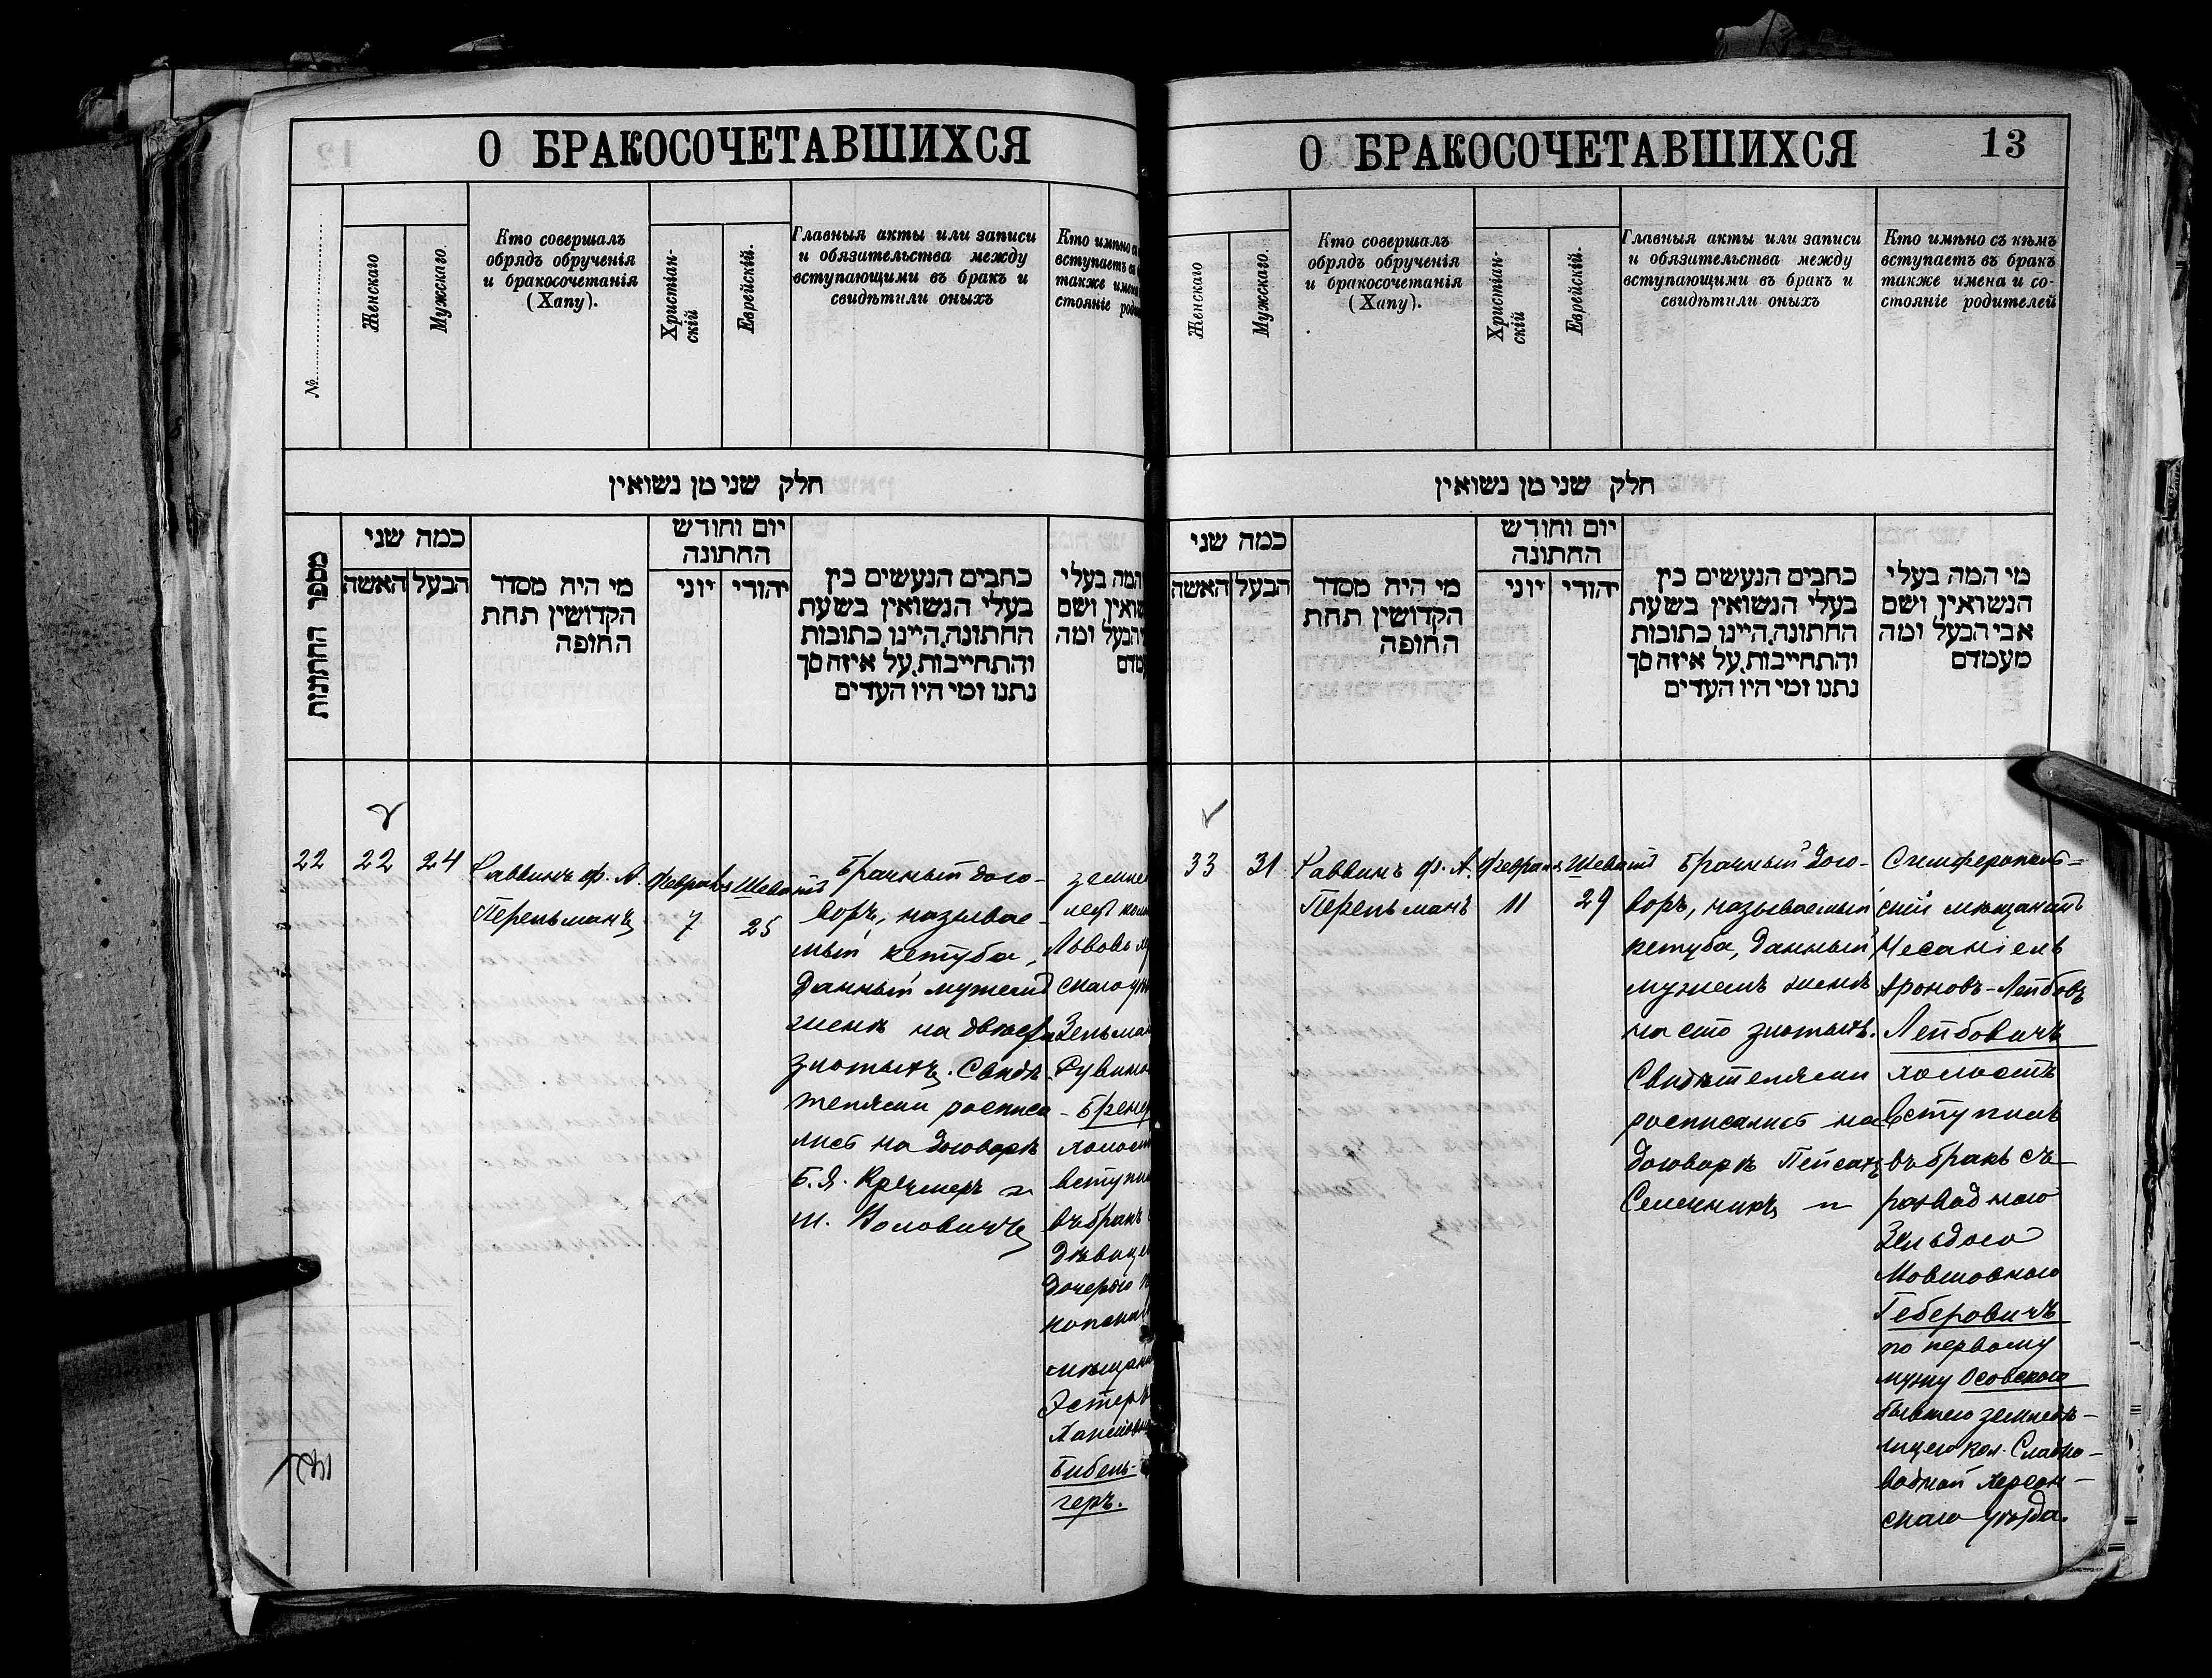 О БРАКОСОЧЕТАВШИХСЯ
№
Женскаго
Мужскаго
Кто совершалъ
обрядъ обрученія
и бракосочетанія
(Хапу).
Христіан-
скій
Еврейскій.
Главныя акты или записи
и обязательства между
вступающими въ бракъ и
свидѣтили оныхъ
Кто имѣно
вступаетъ
также
стояніе
חלק שני מן נשואין
מספר החתונות
כמה שני
האשה
הבעל
מי היה מסדר
הקדושין תחת
החופה
יום וחודש
החתונה
יוני
יהודי
כתבים הנעשים בין
בעלי הנשואין בשעת
החתונה, היינו כתובות
והתחייבות, על איזה סך
נתנו ומי היו העדים
המה בעלי
ושם
הבעל ומה
22
22
24
Раввинъ ф. А.
Перельманъ
Февраля
7
Шеватъ
25
Брачный дого-
воръ, называе-
мый кетуба,
данный мужемъ
женѣ на двѣсти
злотыхъ. Свидѣ-
телями росписа-
лись на договорѣ
Б. Я. Кремеръ и
Ш. Воловичъ
Зельман
Рувимо
вступи
въ бракъ
дѣвице
дочерью
мѣщани
Эстер
Бибель-
геръ.
О БРАКОСОЧЕТАВШИХСЯ
13
Женскаго
Мужскаго.
Кто совершалъ
обрядъ обрученія
и бракосочетанія
(Хапу).
Христіан-
скій
Еврейскій.
Главныя акты или записи
и обязательства между
вступающими въ бракъ и
свидѣтили оныхъ
Кто имѣно съ кѣмъ
вступаетъ въ бракъ
также имена и со-
стояніе родителей
חלק שני מן נשואין
כמה שני
האשה
הבעל
מי היה מסדר
הקדושין תחת
החופה
יום וחודש
החתונה
יוני
יהודי
כתבים הנעשים בין
בעלי הנשואין בשעת
החתונה, היינו כתובות
והתחייבות, על איזה סך
נתנו ומי היו העדים
מי המה בעלי
הנשואין ושם
אבי הבעל ומה
מעמדם
33
31
Раввинъ ф. А.
Перельманъ
Февраля
11
Шеватъ
29
Брачный дого-
воръ, называемый
кетуба, данный
мужемъ женѣ
на сто злотыхъ.
Свидѣтелями
росписались на
договорѣ Пейсахъ
и
Симферополь-
скій мѣщанинъ
Ароновъ-Лейбовъ
Лейбовичъ
холостъ
вступилъ
въ бракъ съ
разводною
Зельдою
Мовшовною
Геберовичъ
по первому
мужу Осовскою
бывшею земледѣ-
лицею кол. Сладко-
водной Херсон-
скаго уѣзда.